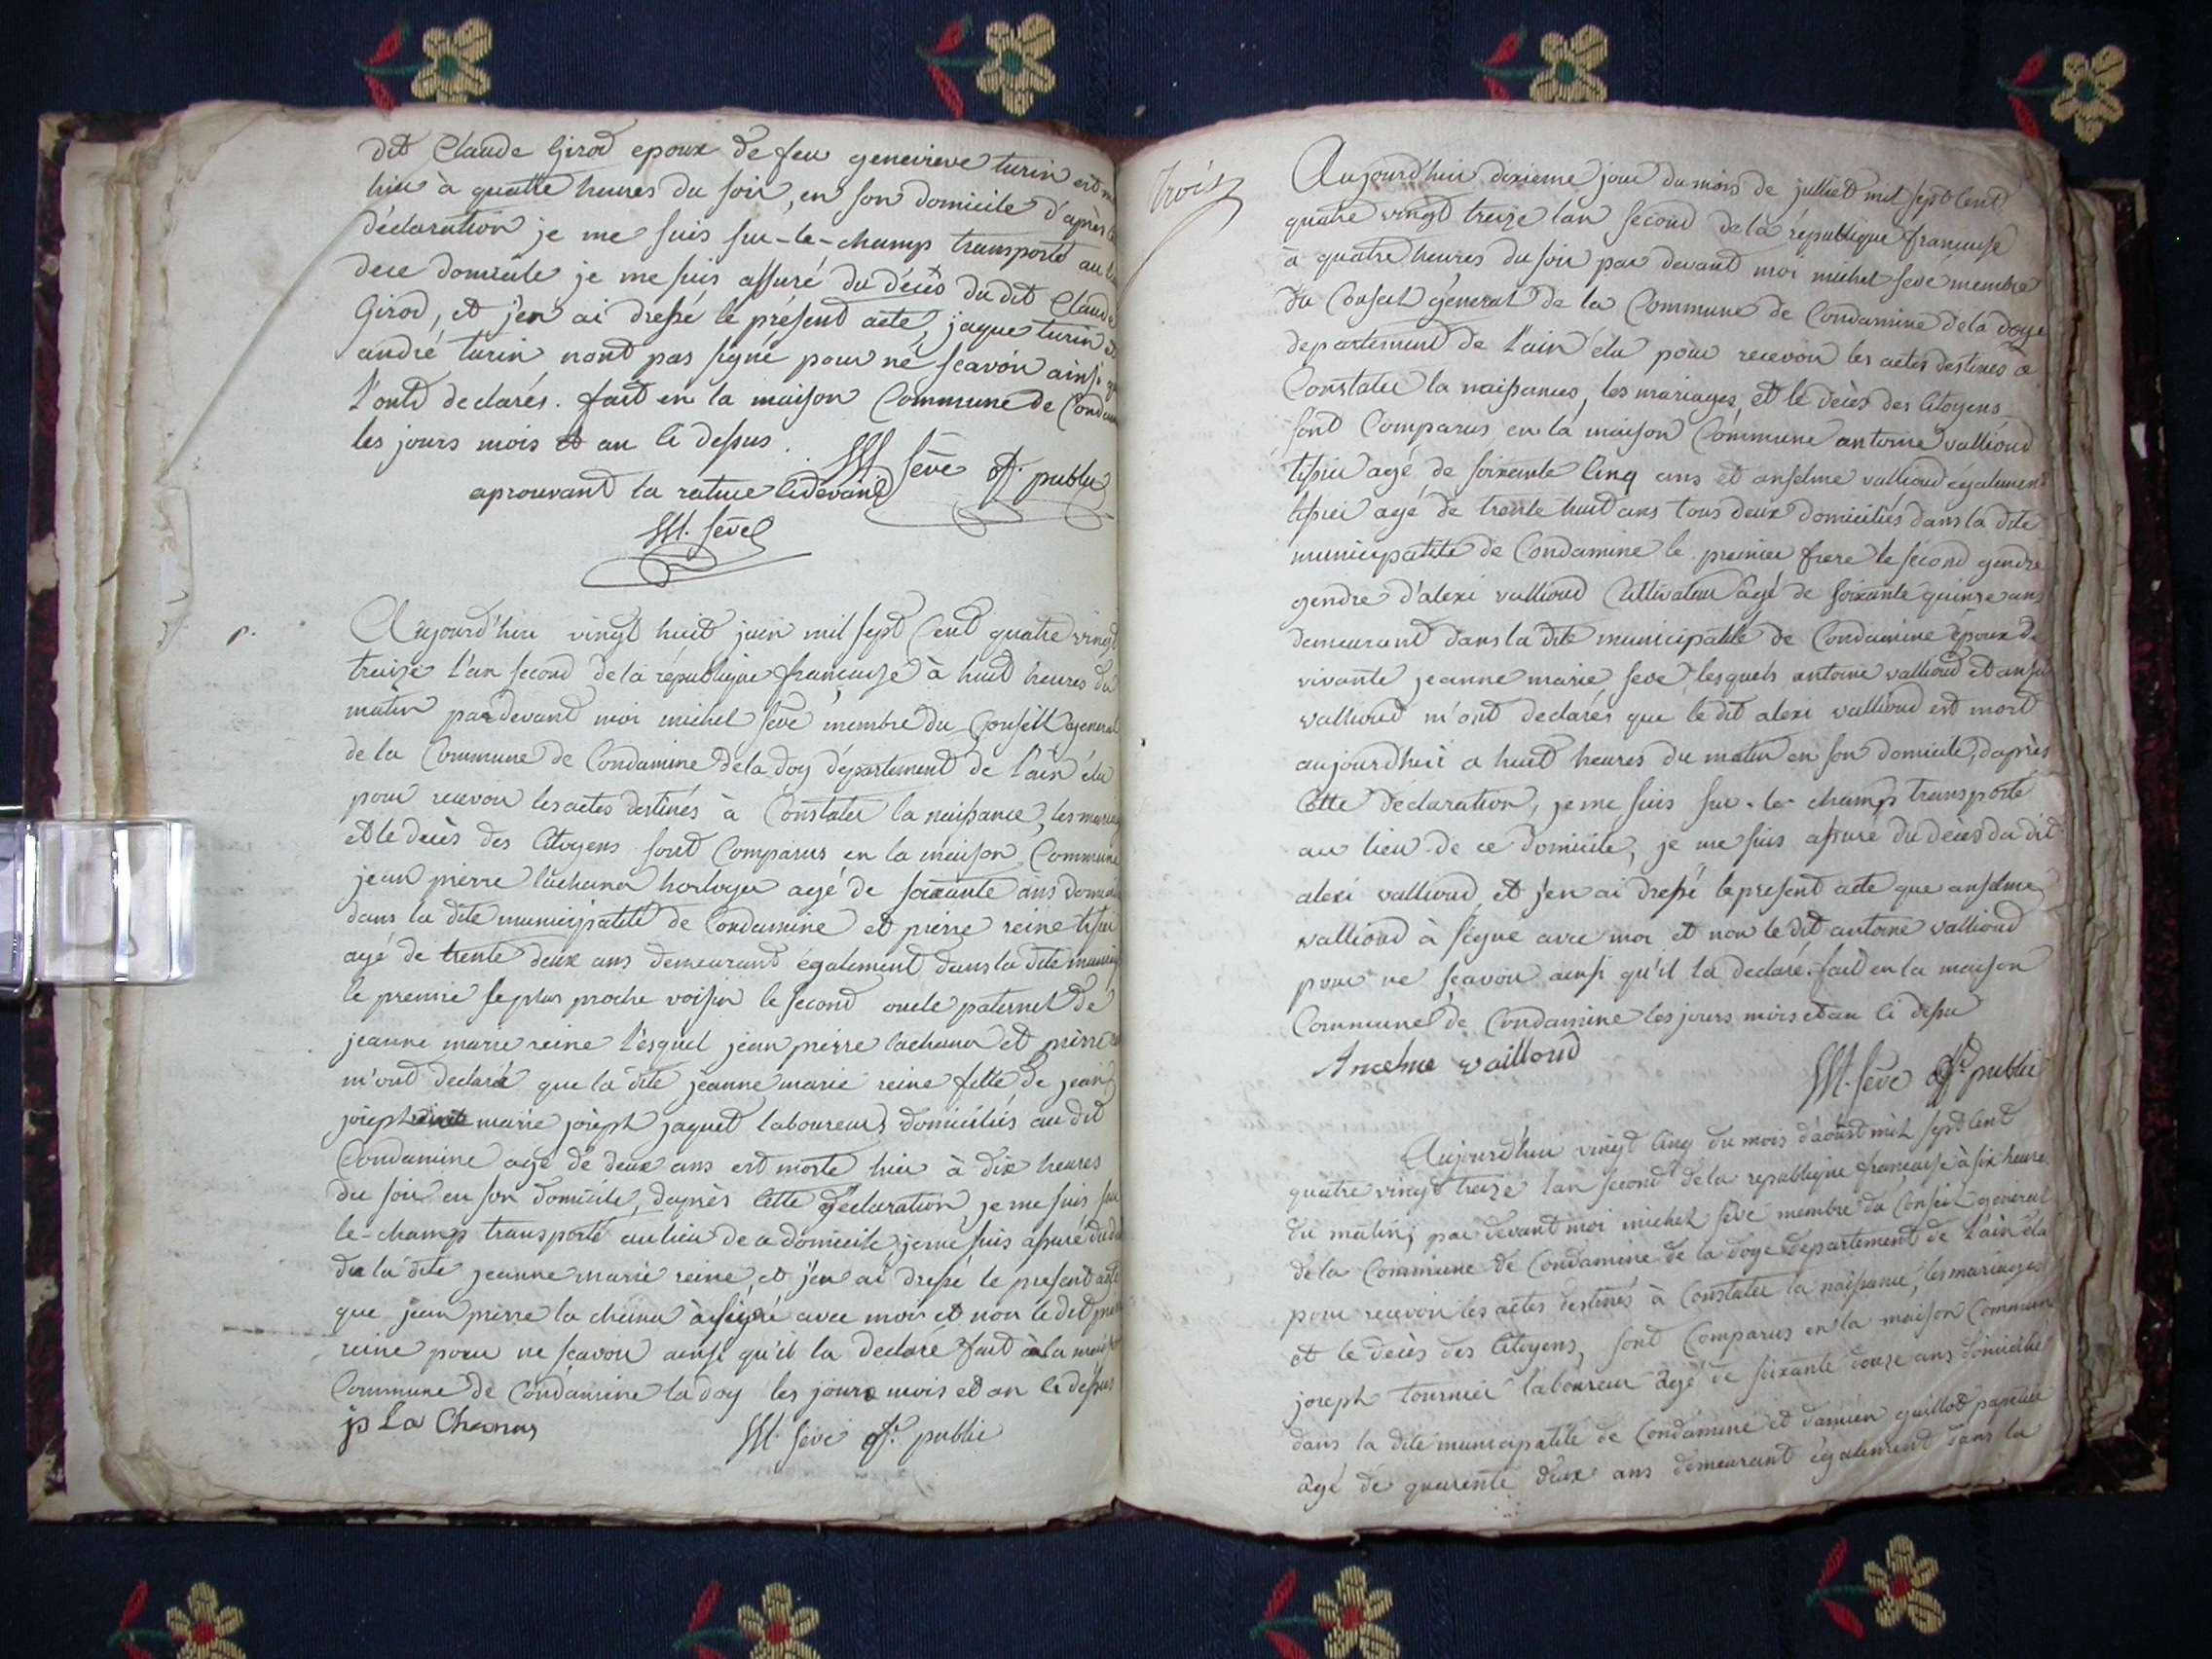 dit Claude Girod epoux de feu genevieve turin est
hier à quatre heures du soir, en son domicile d'après
déclaration je me suis sur-le-champs transporté au
de ce domicile je me suis assuré du décès du dit Claude
Girod, et j'en ai dressé le présent acte, jaque turin et
andré turin nont pas signé pour ne scavoir ainsi
l'ont declarés. fait en la maison Commune de
les jours mois et an ci dessus.
M Sève of. public
aprouvant la rature cidevant
M. Sève
Aujourd'hui vingt huit juin mil sept cent quatre vingt
treize l'an second de la république française à huit heures du
matin pardevant moi michel Sève membre du Conseil general
de la Commune de Condamine dela doy département de l'ain élu
pour recevoir les actes destinés à Constater la naissance, les
et le décès des Citoyens sont Comparus en la maison Commune
jean pierre lachana horloger agé de soixante ans
dans la dite municipalité de Condamine et pierre reine
agé de trente deux ans demeurant également dans la dite
le premie le plus proche voisin le second oncle paternel de
jeanne marie reine l'esquel jean pierre lachana et pierre
m'ont declaré que la dite jeanne marie reine fille de jean
joseph marie joseph jaquet laboureurs domiciliés au dit
Condamine agé de deux ans est morte hier à dix heures
du soir en son domicile, daprès cette declaration je me suis sur
le-champ transporté au lieu de ce domicile je me suis assuré du
de la dite jeanne marie reine, et j'en ai dressé le present acte
que jean pierre la chana à signé avec moi et non le dit
reine pour ne scavoir ainsi qu'il la declaré fait à la
Commune de Condamine la doy les jours mois et an ci dessus
jp La Chana
M. Sève of. public
trois
Aujourd'hui dixieme jour du mois de julliet mil sept cent
quatre vingt treize lan second de la république française
à quatre heures du soir par devant moi michel seve membre
du Conseil géneral de la Commune de Condamine dela doye
departement de l'ain élu pour recevoir les actes destinés à
Constater la naissances, les mariages, et le décès des Citoyens
sont Comparus en la maison Commune antoine vallioud
tissier agé de soixante cinq ans et anselme vallioud également
tissier agé de trente huit ans tous deux domiciliés dans la dite
municipalité de Condamine le premier frere le second gendre
gendre d'alexi vallioud Cultivateur âgé de soixante quinze ans
demeurant dans la dite municipalité de Condamine epoux de
vivante jeanne marie seve lesquels antoine vallioud et
vallioud m'ont declarés que le dit alexi vallioud est mort
aujourdhui a huit heures du matin en son domicile, daprès
Cette déclaration, je me suis sur-le-champs transporté
au lieu de ce domicile, je me suis assuré du décès du dit
alexi vallioud, et j'en ai dressé le present acte que anselme
vallioud à signe avec moi et non le dit antoine vallioud
pour ne scavoir ainsi qu'il la declaré. fait en la maison
Commune de Condamine les jours mois et an ci dessu
Ancelme vailloud
M. Sève of. public
Aujourd'hui vingt cinq du mois d'aoust mil sept cent
quatre vingt treize lan second de la republique française à six heure
du matin, par devant moi michel Sève membre du Conseil general
de la Commune de Condamine de la doye departement de l'ain élu
pour recevoir les actes destinés à Constater la naissance, les mariages
et le décès des Citoyens, sont Comparus en la maison Commune
joseph tournier laboureur âgé de soixante douze ans domicilié
dans la dite municipalité de Condamine et damien guillot
agé de quarente deux ans demeurant également dans la